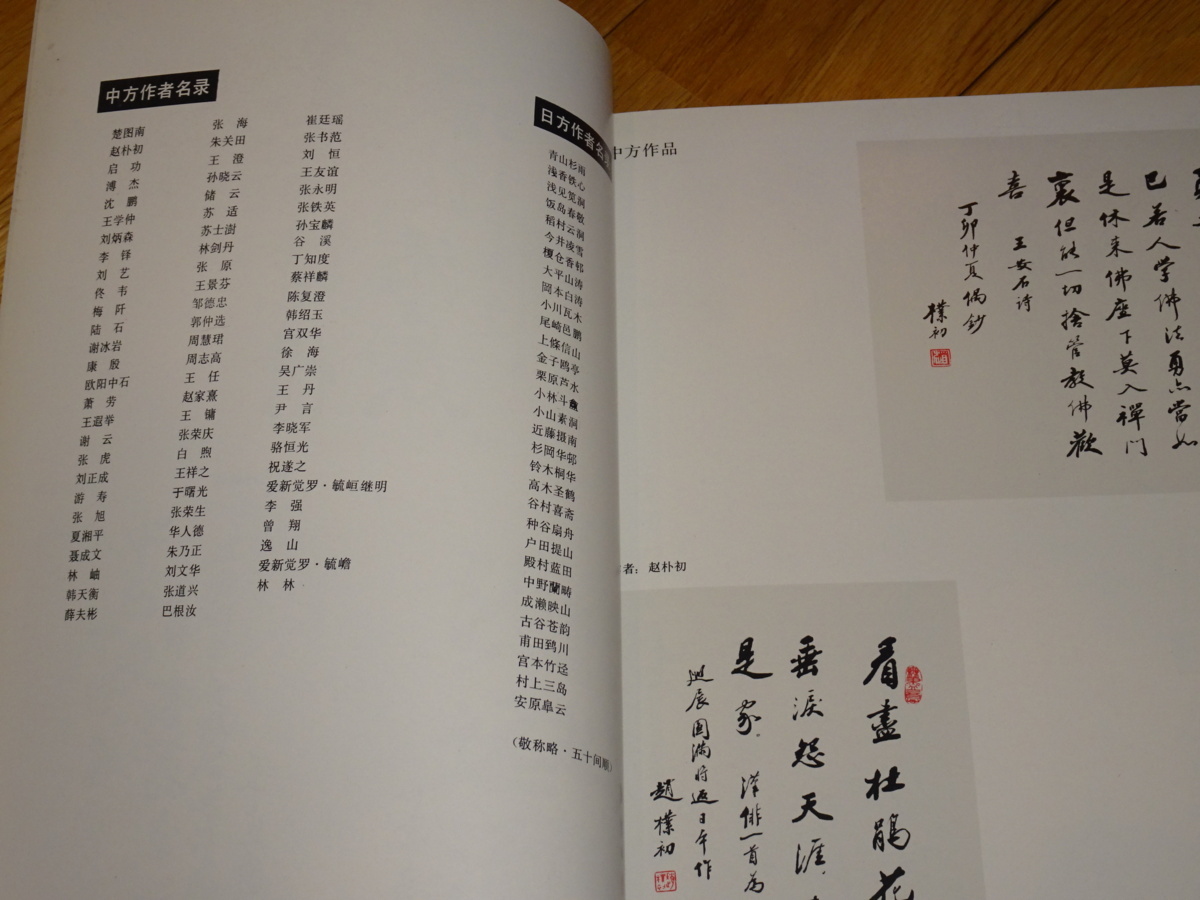 中方作者名录
楚图南
赵朴初
启 功
溥 杰
沈 鹏
王学仲
刘炳森
李 铎
刘 艺
佟 韦
梅 阡
陆 石
谢冰岩
康 殷
欧阳中石
萧 劳
王遐举
谢 云
张 虎
刘正成
游 寿
张 旭
夏湘平
聂成文
林 岫
韩天衡
薛夫彬
张 海
朱关田
王 澄
孙晓云
储 云
苏 适
苏士澍
林剑丹
张 原
王景芬
邹德忠
郭仲选
周慧珺
周志高
王 任
赵家熹
王 镛
张荣庆
白 煦
王祥之
于曙光
张荣生
华人德
朱乃正
刘文华
张道兴
巴根汝
崔廷瑶
张书范
刘 恒
王友谊
张永明
张铁英
孙宝麟
谷 溪
丁知度
蔡祥麟
陈复澄
韩绍玉
宫双华
徐 海
吴广崇
王 丹
尹 言
李晓军
骆恒光
祝遂之
爱新觉罗·毓峘继明
李 强
曾 翔
逸 山
爱新觉罗·毓嶦
林 林
日方作者名
青山杉雨
浅香铁心
浅见筧洞
饭岛春敬
稻村云洞
今井凌雪
榎仓香邨
大平山涛
冈本白涛
小川瓦木
尾崎邑鹏
上條信山
金子鸥亭
栗原芦水
小林斗盦
小山素洞
近藤摄南
杉冈华邨
铃木桐华
高木圣鹤
谷村喜斋
种谷扇舟
户田提山
殿村蓝田
中野蘭疇
成濑映山
古谷苍韵
甫田鹀川
宫本竹迳
村上三岛
安原皐云
(敬称略·五十间顺)
中方作品
已若人学佛法勇亦當如
是休来佛座下莫入禪门
裏但能一切捨管教佛歡
喜 王安石诗
丁卯仲夏偶鈔
樸初
者：赵朴初
看盡杜鹃花
垂淚怨天涯
是家 漢俳一首为
返日年作
趙樸初